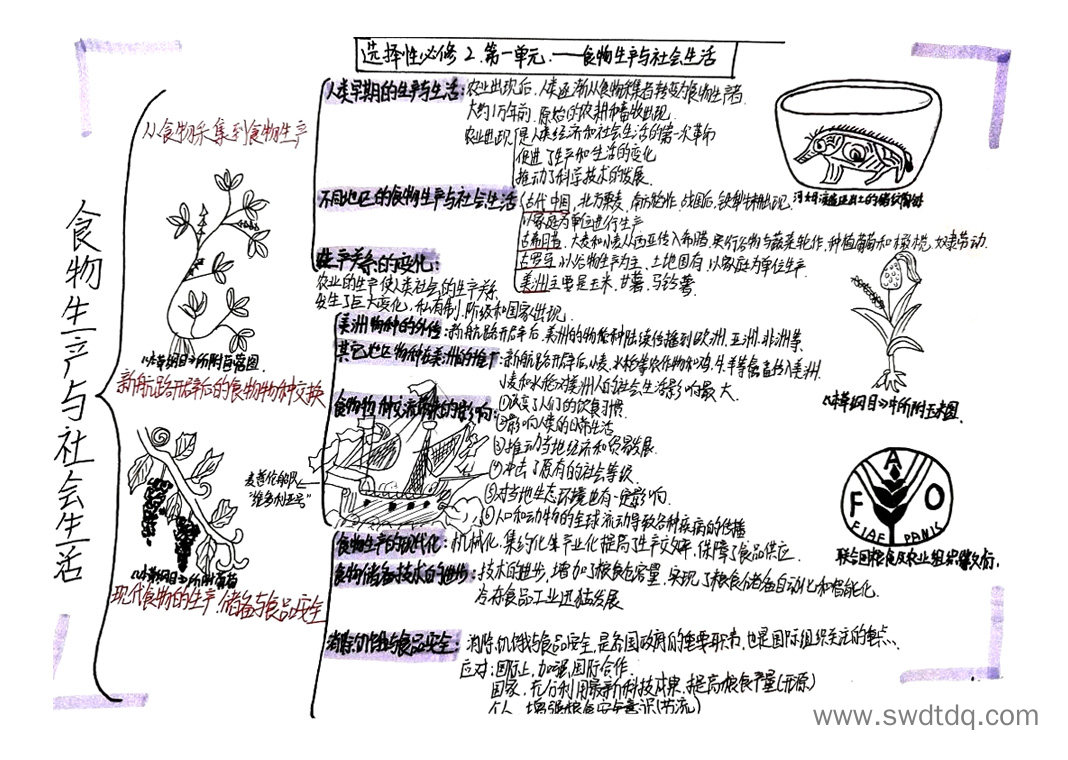 选择性必修2.第一单元.——食物生产与社会生活
食物生产与社会生活
从食物采集到食物生产
人类早期的生产与生活:农业出现后,人类逐渐从食物采集者转变为食物生产者.
大约1万年前.原始的农耕和畜牧出现.
农业出现 是人类经济和社会生活的第一次革命
促进了生产和生活的变化
推动了科学技术的发展.
不同地区的食物生产与社会生活
古代中国,北方粟麦,南方稻作,战国后,铁犁牛耕出现.
以家庭为单位进行生产
古希腊.大麦和小麦从西亚传入希腊.实行谷物与蔬菜轮作,种植葡萄和橄榄.奴隶劳动.
古罗马.以谷物生产为主.土地国有.以家庭为单位生产.
美洲主要是玉米.甘薯.马铃薯.
生产关系的变化:
农业的生产使人类社会的生产关系
发生了巨大变化,私有制,阶级和国家出现.
河姆渡遗址出土的猪纹陶钵
《本草纲目》所附甘薯图
新航路开辟后的食物物种交换
美洲物种的外传:新航路开辟后.美洲的物种陆续传播到欧洲.亚洲.非洲等.
其它地区物种在美洲的推广:新航路开辟后,小麦.水稻等农作物和鸡.牛.羊等禽畜传入美洲.
小麦和水稻对美洲人的社会生活影响最大.
食物物种交流带来的影响:①改变了人们的饮食习惯.
②影响人类的日常生活
③推动当地经济和贸易发展.
④冲击了原有的社会等级.
⑤对当地生态环境也有一定影响.
⑥人口和动物的全球流动导致各种疾病的传播
麦哲伦船队
"维多利亚号"
《本草纲目》中所附玉米图.
《本草纲目》所附葡萄
F A O
FIAT PANIS
联合国粮食及农业组织徽文标.
现代食物的生产.储备与食品安全
食物生产的现代化:机械化.集约化生产业化提高了生产效率,保障了食品供应.
食物储备技术的进步:技术的进步,增加了粮食仓容量,实现了粮食储备自动化和智能化.
冷冻食品工业迅猛发展
消除饥饿与食品安全:消除饥饿与食品安全.是各国政府的重要职责,也是国际组织关注的重点..
应对:国际上,加强国际合作.
国家.充分利用最新科技成果,提高粮食产量(开源)
个人 增强粮食安全意识(节流)
www.swdtdq.com